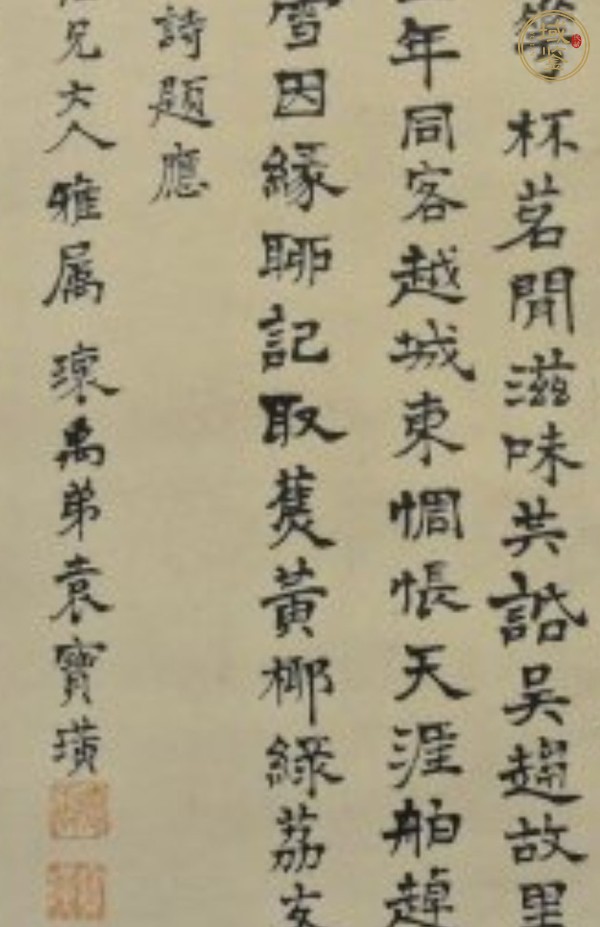 杯茗閒滋味共諳吳趨故里
年同客越城東惆悵天涯舶趠
雪因緣聊記取蕉黃椰綠荔支
詩題應
兄大人雅属 瓌禹弟袁寶璜